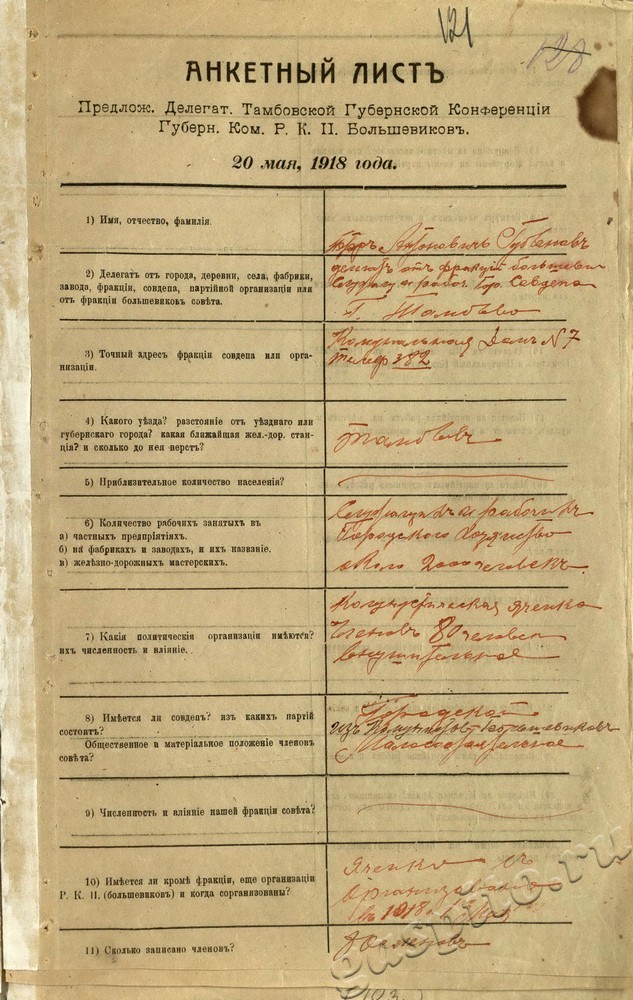 121
128
АНКЕТНЫЙ ЛИСТЪ
Предлож. Делегат. Тамбовской Губернской Конференціи
Губерн. Ком. Р. К. П. Большевиковъ.
20 мая, 1918 года.
1) Имя, отчество, фамилія.
Антоновичъ Губановъ
2) Делегатъ отъ города, деревни, села, фабрики,
завода, фракціи, совдепа, партійной организаціи или
отъ фракціи большевиковъ совѣта.
делегатъ отъ фракціи большеви
и рабоч. Гор. Совдепа
г. Тамбово
3) Точный адресъ фракціи совдепа или орга-
низаціи.
Комунальная Домъ N 7
Телеф 382
4) Какого уѣзда? разстояніе отъ уѣзднаго или
губернскаго города? какая ближайшая жел.-дор. стан-
ція? и сколько до нея верстъ?
Тамбовъ
5) Приблизительное количество населенія?
6) Количество рабочихъ занятыхъ въ
а) частныхъ предпріятіяхъ.
б) на фабрикахъ и заводахъ, и ихъ названіе.
в) желѣзно-дорожныхъ мастерскихъ.
и рабочихъ
Городского
около 2000 человекъ.
7) Какія политическія организаціи имѣются?
ихъ численность и вліяніе.
Комунистическая ячейка
Членовъ 80 человек
Внушительное
8) Имѣется ли совдепъ? изъ какихъ партій
состоитъ?
Общественное и матеріальное положеніе членовъ
совѣта?
Городской
изъ Комунистов Большевиковъ
9) Численность и вліяніе нашей фракціи совѣта?
10) Имѣется ли кромѣ фракціи, еще организаціи
Р. К. П. (большевиковъ) и когда сорганизованы?
Ячейка
Организована
въ 1918 г.
11) Сколько записано членовъ?
членовъ